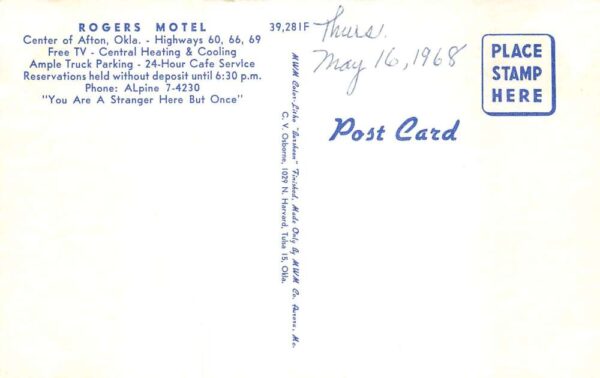 ROGERS MOTEL
Center of Afton, Okla. - Highways 60, 66, 69
Free TV - Central Heating & Cooling
Ample Truck Parking - 24-Hour Cafe Service
Reservations held without deposit until 6:30 p.m.
Phone: ALpine 7-4230
"You Are A Stranger Here But Once"
39,281F
Thurs.
May 16, 1968
PLACE
STAMP
HERE
Post Card
MWM Color-Litho "Lusheen" Finished. Made Only By MWM Co. Aurora, Mo.
C. V. Osborne, 1029 N. Harvard, Tulsa 15, Okla.